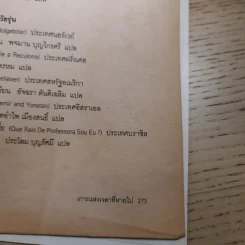 วัยรุ่น
ประเทศนอร์เวย์
พจนาน บุญไกรศรี แปล
ประเทศฝรั่งเศส
แปล
ประเทศสหรัฐอเมริกา
อัจฉรา ตันติเฉลิม แปล
and Yonatan) ประเทศอิสราเอล
เมืองสนธิ์ แปล
(Que Raio De Professora Sou Eu ?) ประเทศบราซิล
ประโลม บุญรัศมี แปล
เกาะแห่งเวลาที่หายไป 273